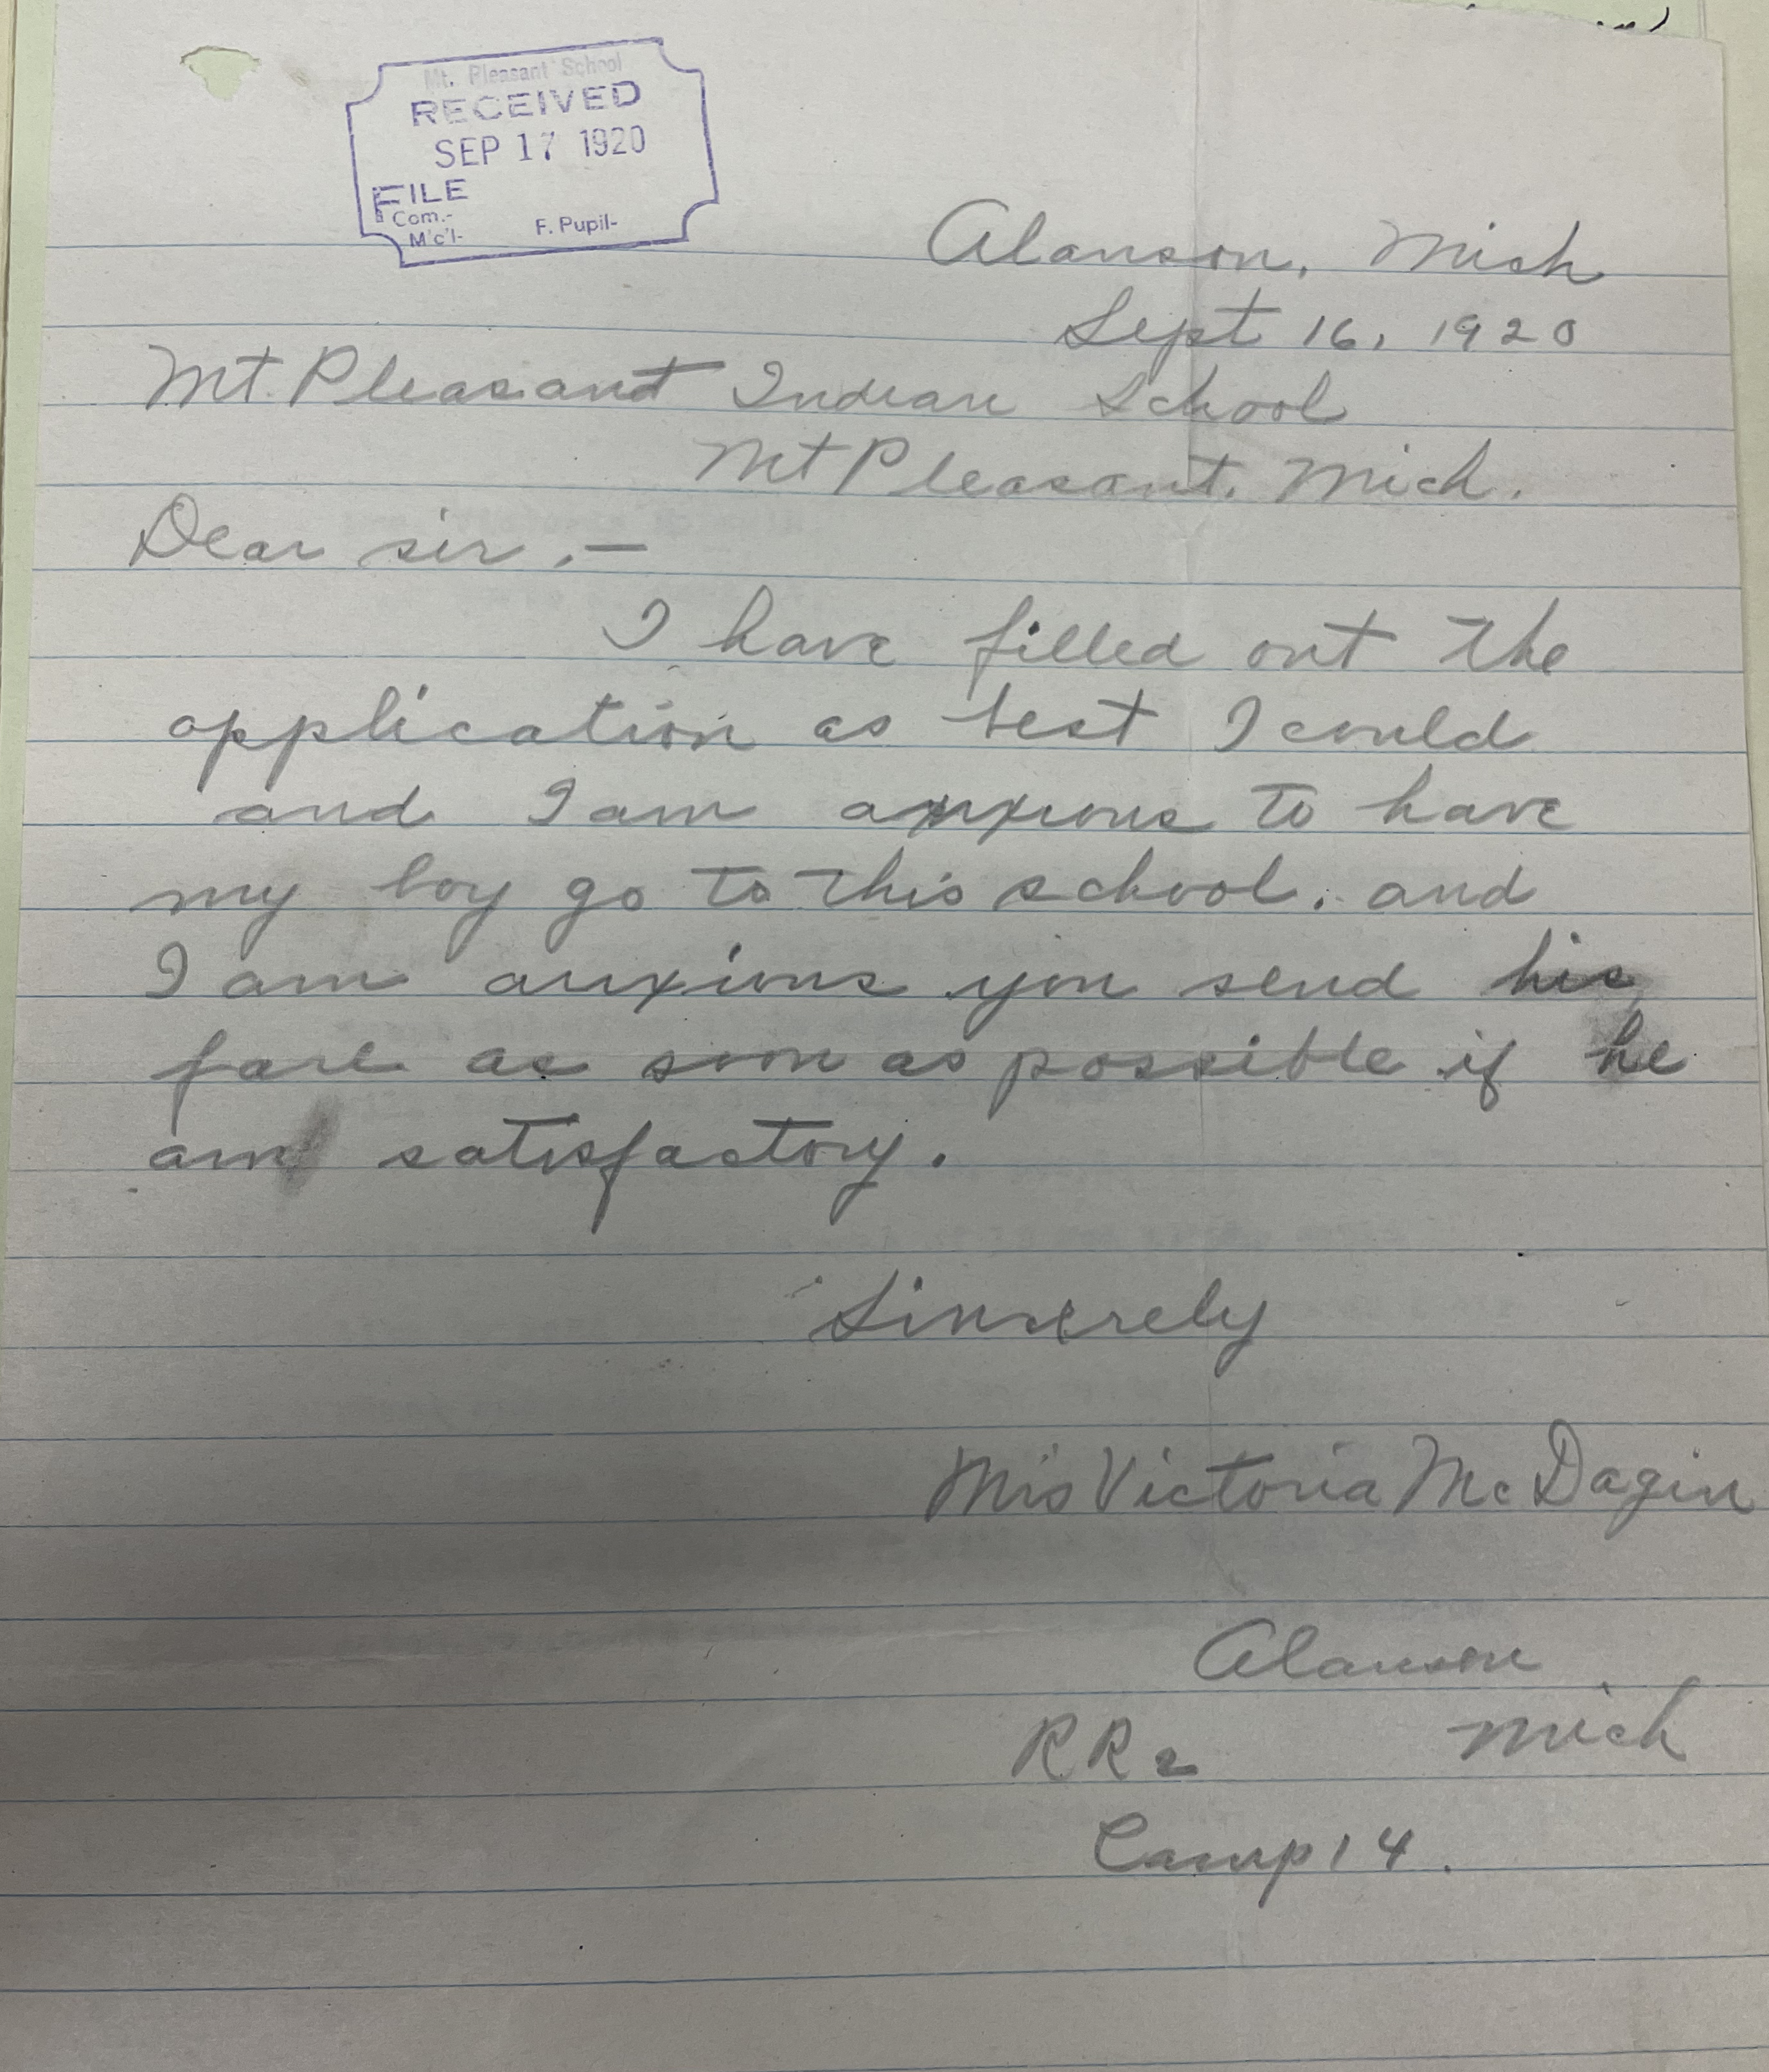 Mt. Pleasant School
RECEIVED
SEP 17 1920
FILE
Com.-
M'c'l-
F. Pupil-
Alanson, Mich
Sept 16, 1920
Mt. Pleasant Indian School
Mt Pleasant. Mich.
Dear sir.-
I have filled out the
application as best I could
and I am anxious to have
my boy go to this school. and
I am anxious you send his
fare as soon as possible if he
am satisfactory.
Sincerely
Mrs Victoria McDagin
Alanson
RR2 Mich
Camp 14.